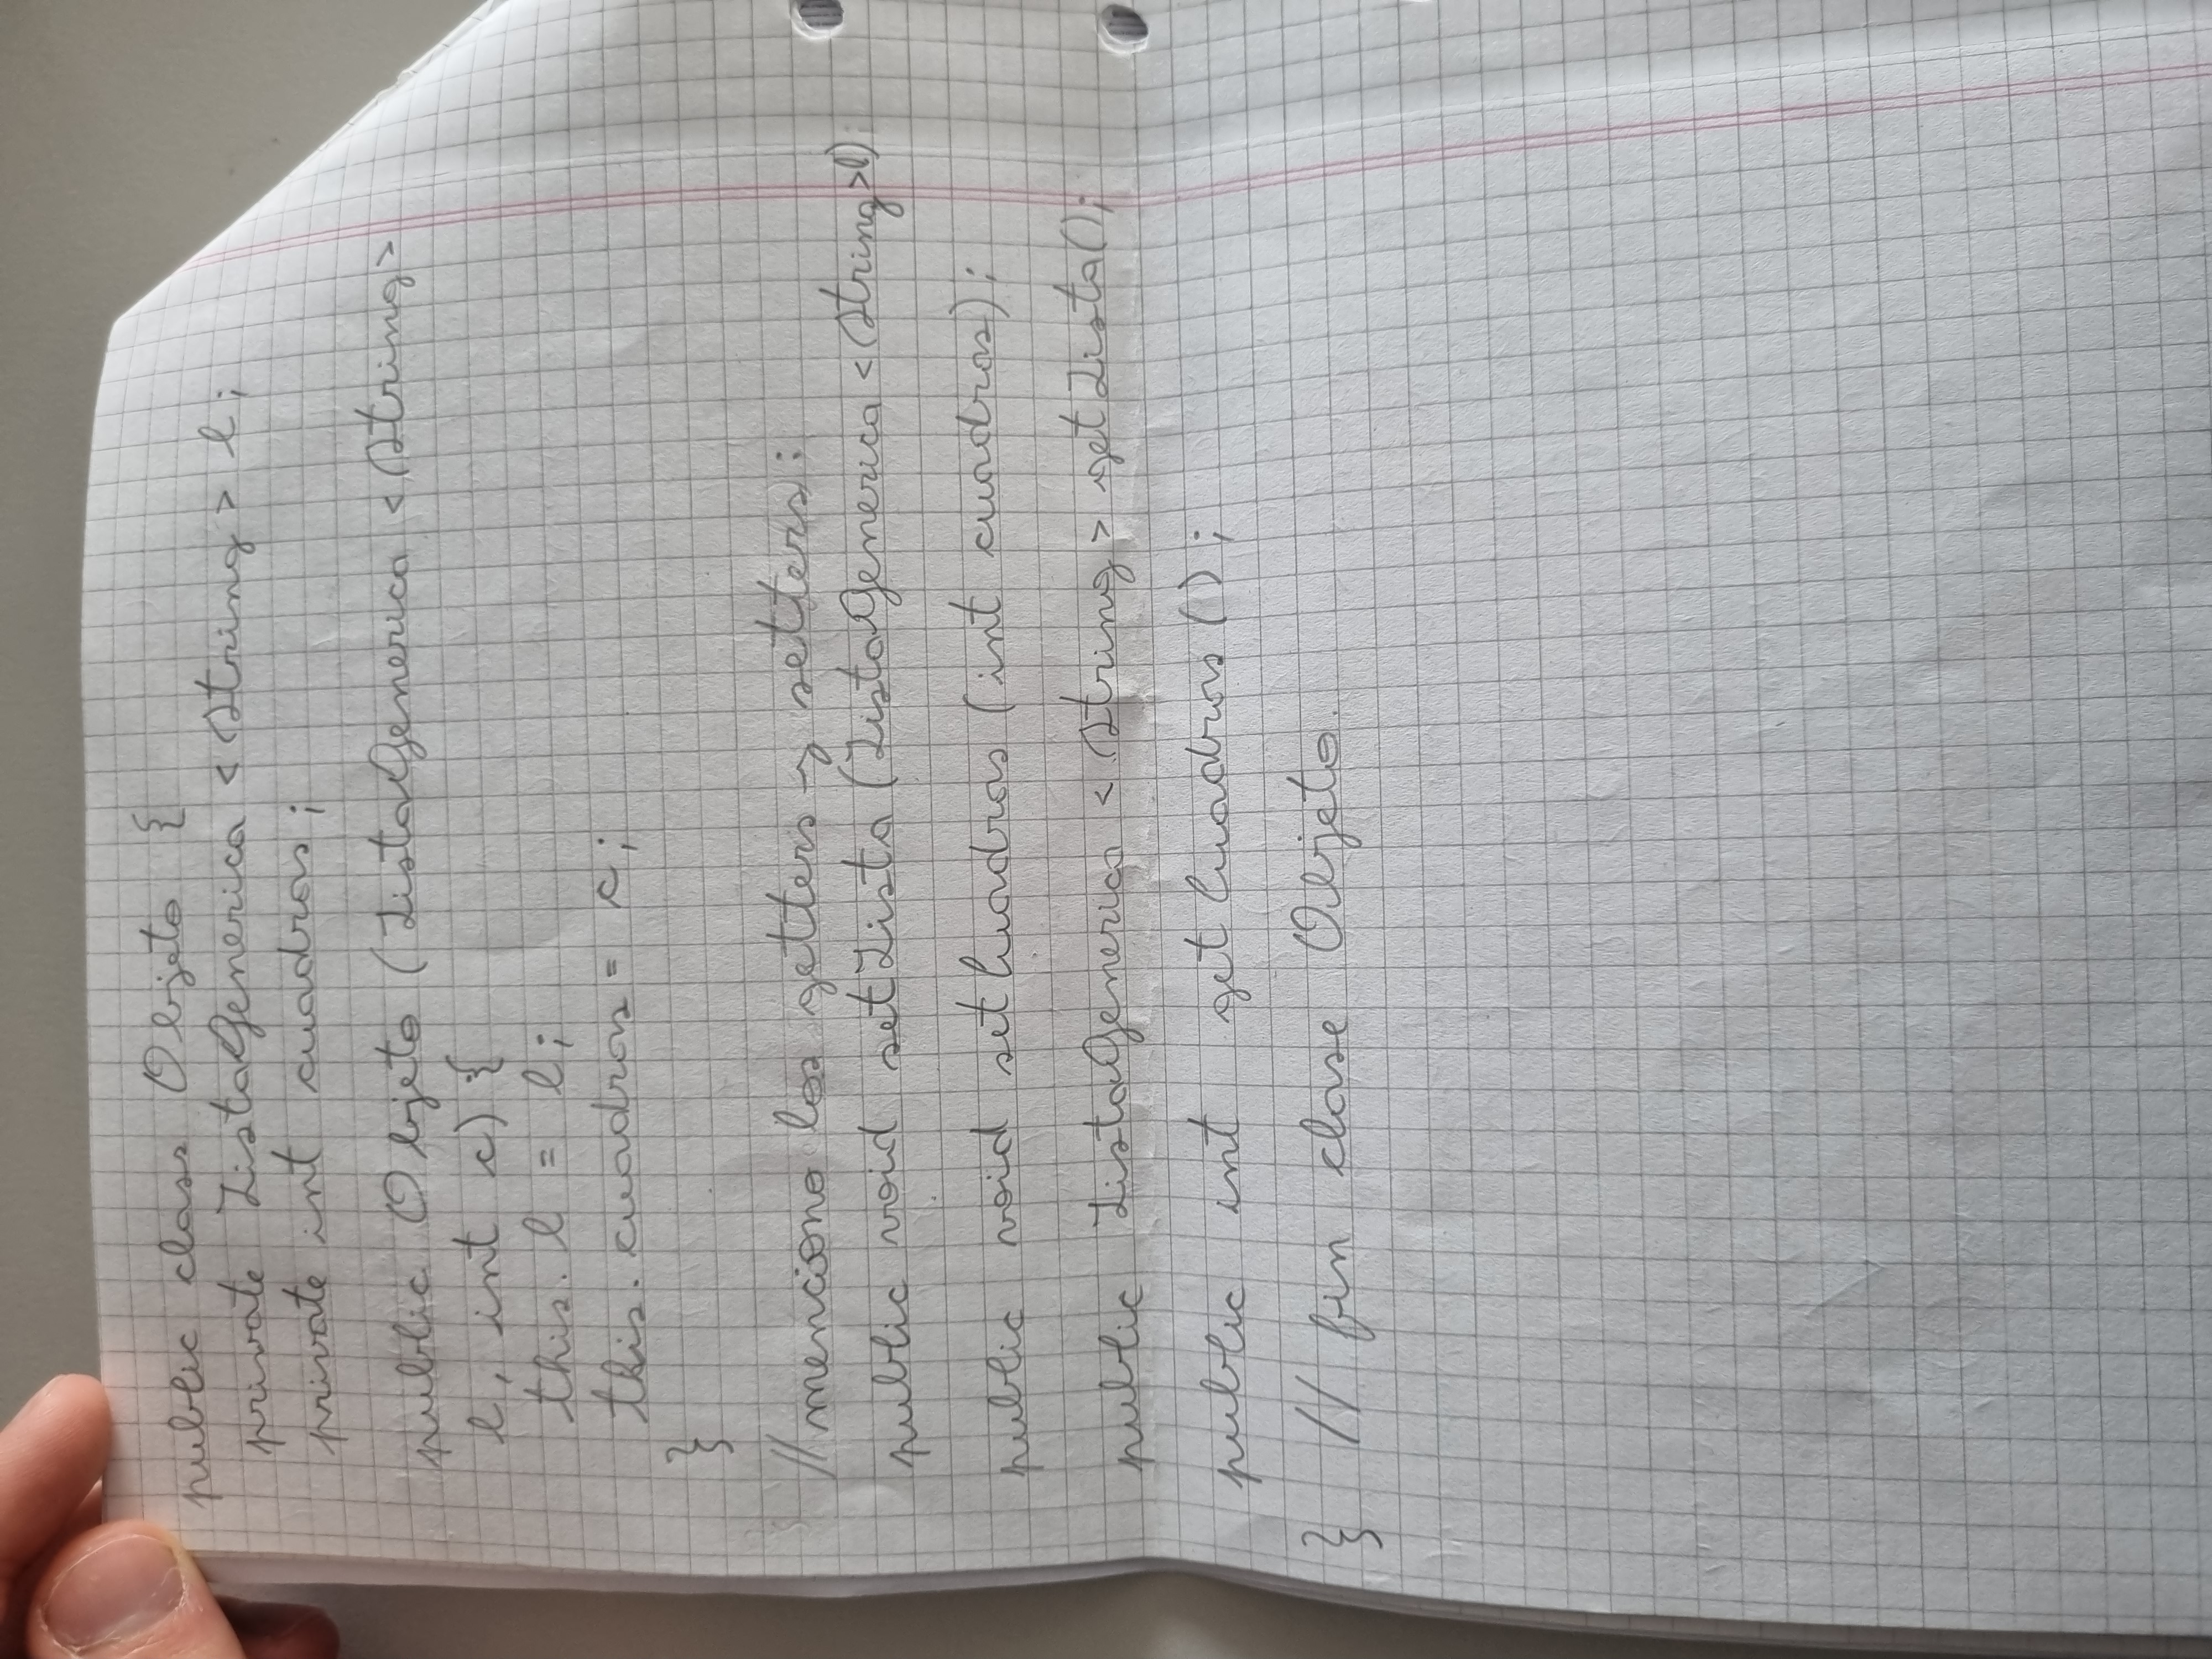 public class Objeto {
private ListaGenerica <String> l;
private int cuadros;
public Objeto (ListaGenerica <String>
l, int c) {
this.l = l;
this.cuadros = c;
}
//menciono los getters y setters:
public void setLista (ListaGenerica <String> l)
public void setCuadros (int cuadros);
public ListaGenerica <String> getLista();
public int getCuadros();
} // fin clase Objeto.